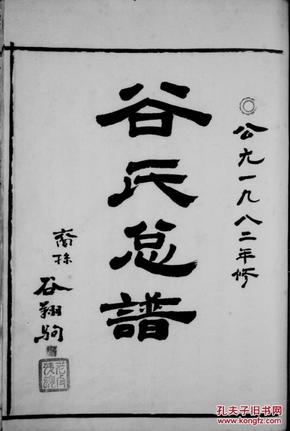 公元一九八二年修
谷氏总譜
裔孫
谷翔驹
孔夫子旧书网